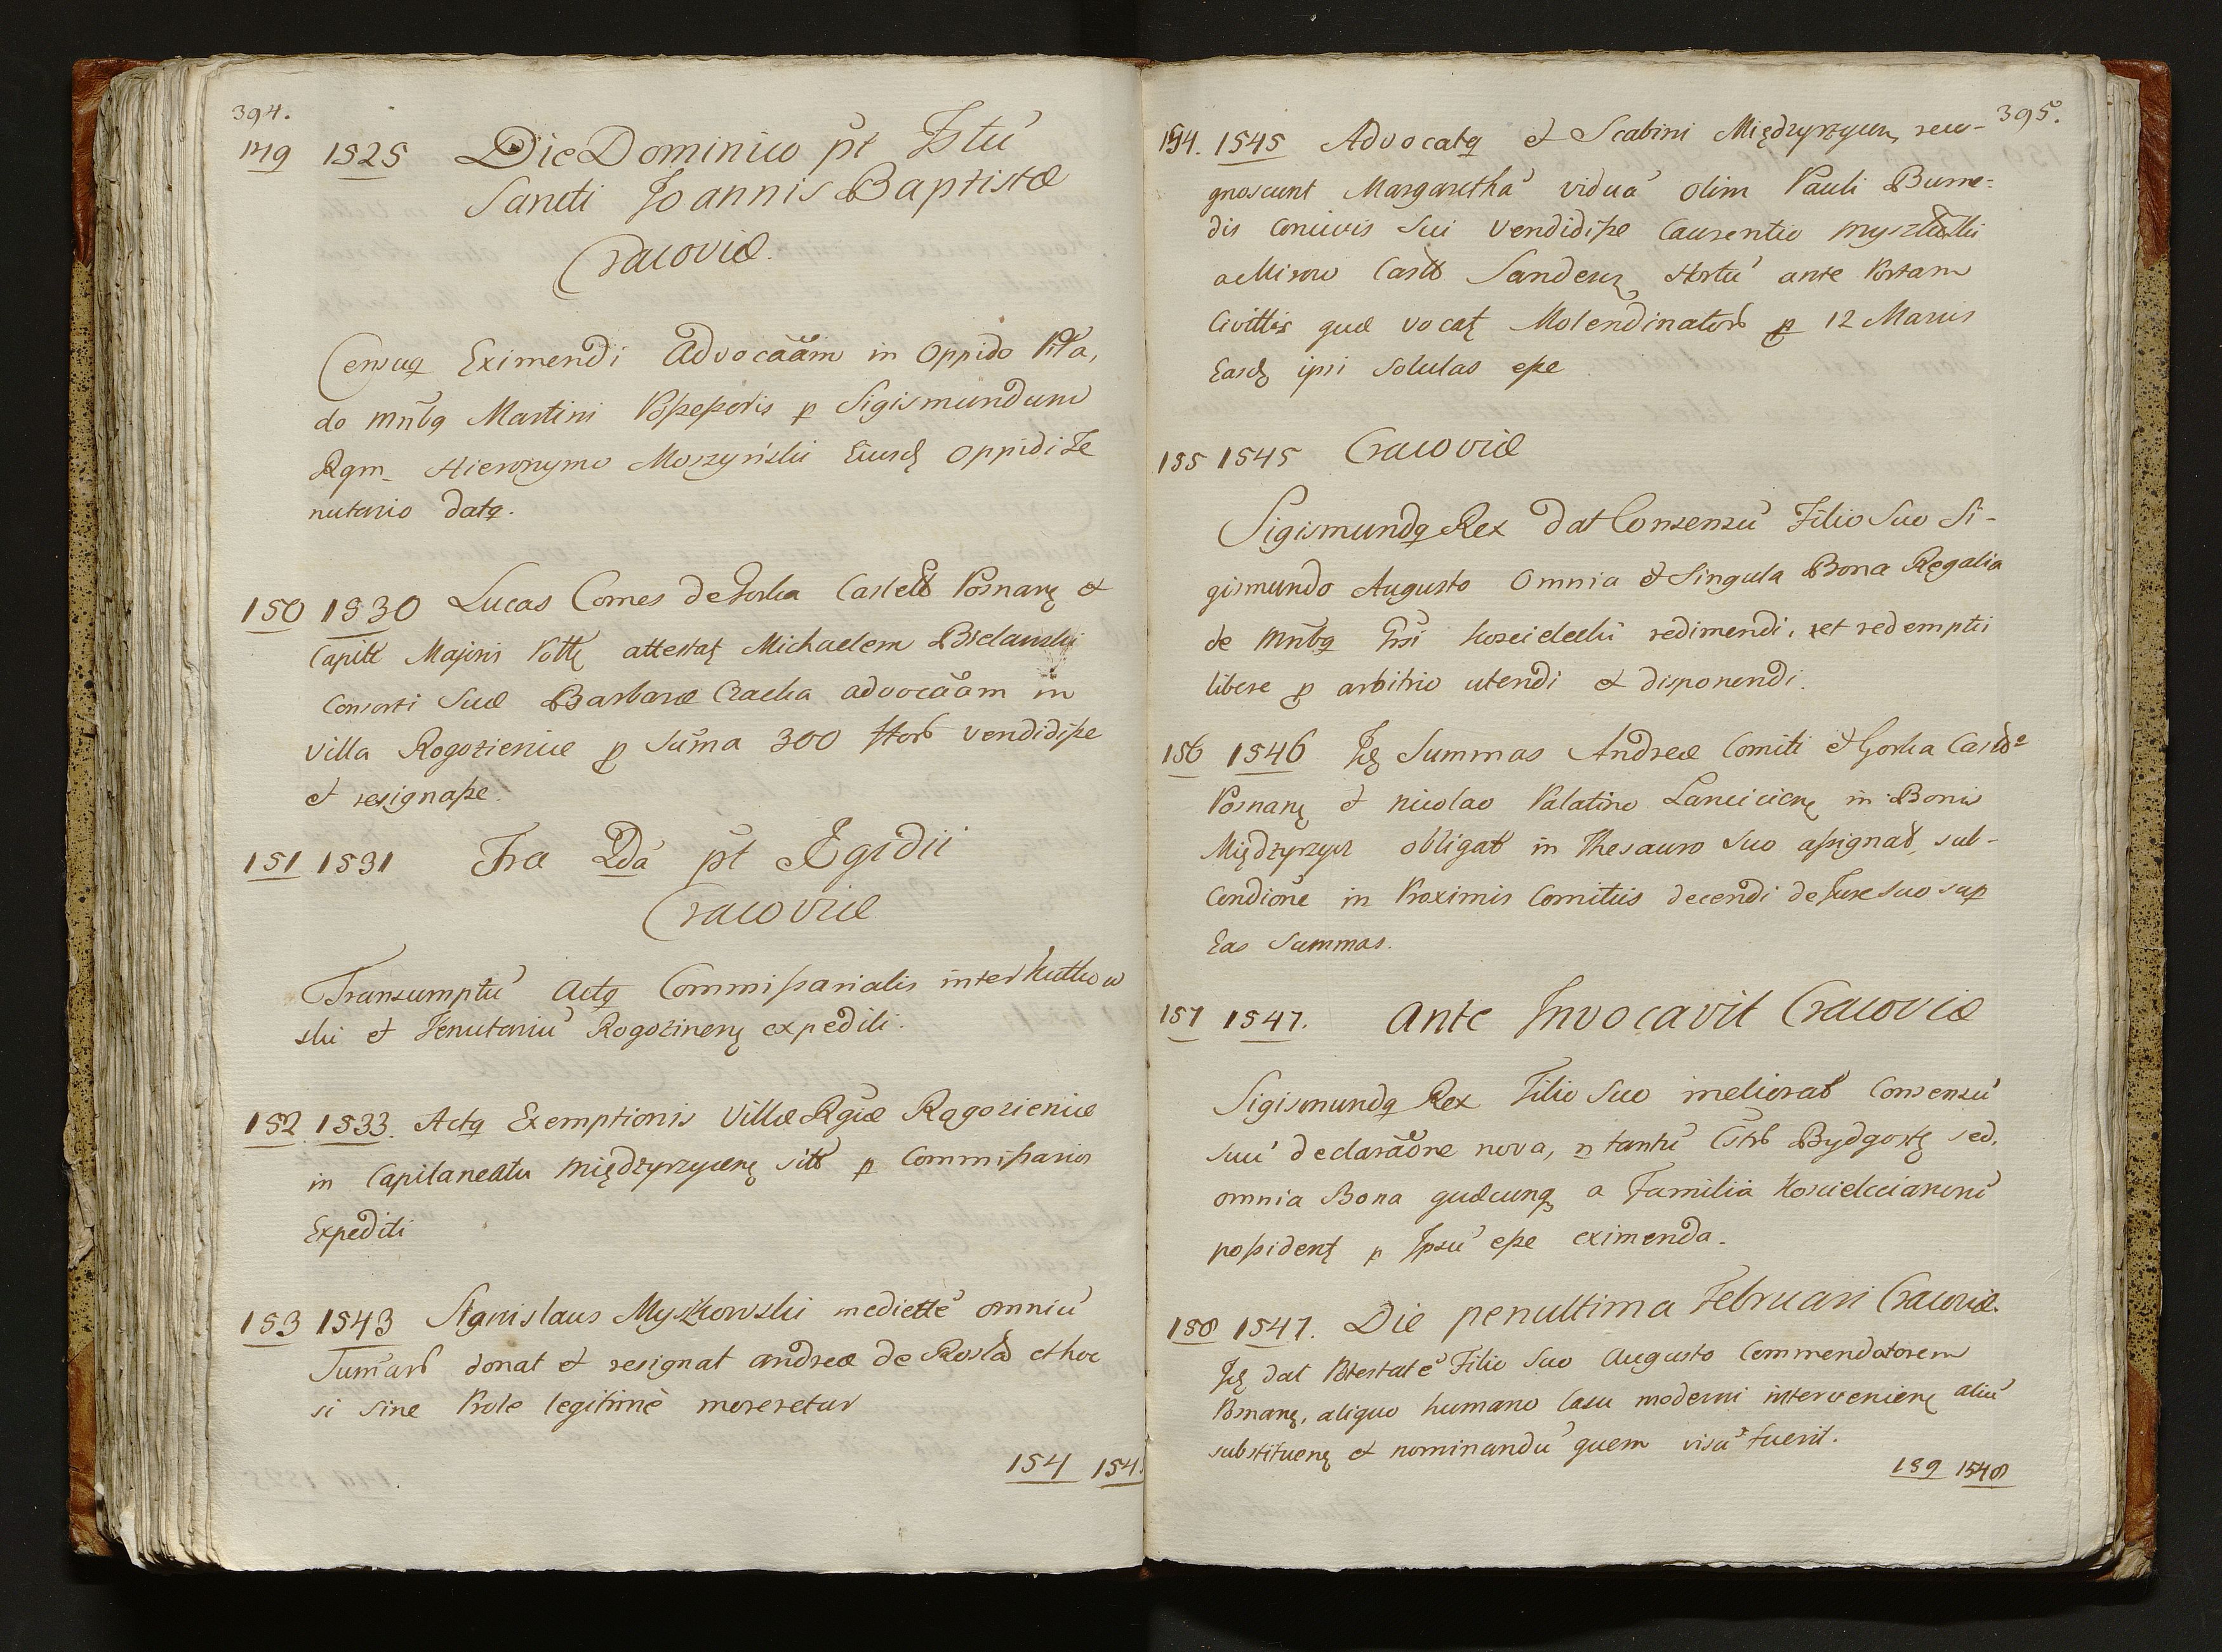 394.
149 1525 Die Dominico pt Fstū
Sancti Joannis Baptistæ
Cracoviæ.
Censuq Eximendi Advocāām in Oppido Piła,
de mnbq Martini Poßeßoris p Sigismundum
Rgm Hieronymo Moszyński Eiusdꝫ Oppidi Te
nutario datq.
150 1530 Lucas Comes de Gorka Castell Posnanę &
Capitt Majoris Pottę attestatę Michaelem Bielawski
Consorti suæ Barbaræ Czacka advocāām in
villa Rogozienice p Sum̄a 300 fflor vendidiße
et resignaße.
151 1531 Fra 2da pt Ægidii
Cracoviæ
Transumptū Actq Commißarialis inter Kutkow
ski et Tenutariū Rogozinenę expediti.
152. 1533. Actq Exemptionis Villæ Rgiæ Rogozienice
in Capitaneatu Międzyrzycenę sitt p Commißarios
Expediti
153 1543 Stanislaus Myszkowski mediettē omniū
Sum̄ar donat et resignat Andreæ de et hoc
si sine Prole legitimè moreretur
154 154
395.
154. 1545 Advocatq et Scabini Międzyrzycen reco-
gnoscunt Margarethā viduā olim Pauli Burne=
dis Concivis sui vendidiße Laurentio myszkowski
a Mirow Castt Sandecę Hortū ante Portam
Civittis quæ vocatę Molendinator p 12 Marcis
Easdꝫ ipsi solutas eße
155 1545 Cracoviæ
Sigismundq Rex dat Consensū Filio Suo Si-
gismundo Augusto Omnia et Singula Bona Regalia
de mnbq Koscielecki redimendi, et redemptis
libere p arbitrio utendi & disponendi.
156 1546 Idꝫ Summas Andreæ Comiti & Gorka Castt
Posnanę et Nicolao Palatino Lancicienę in Bonis
Międzyrzycz obligat in Thesauro suo aßignat, sub-
Condiōne in Proximis Comitiis decendi de Jure suo sup
Eas Summas.
157 1547. Ante Invocavit Cracoviæ
Sigismundq Rex Filio Suo meliorat Consensū
suū declarāōne nova, n tantū Cstr Bydgostę sed.
omnia Bona quæcunqꝫ a Familia Koscieleciananū
poßidentę p Ipsū eße eximenda.
158 1547. Die penultima Februarii Cracoviæ.
Idꝫ dat Potestatē Filio suo Augusto Commendatorem
Posnanę, aliquo humano casu moderni intervenienę aliū
substituenę et nominandū quem visū fuerit.
159 1548